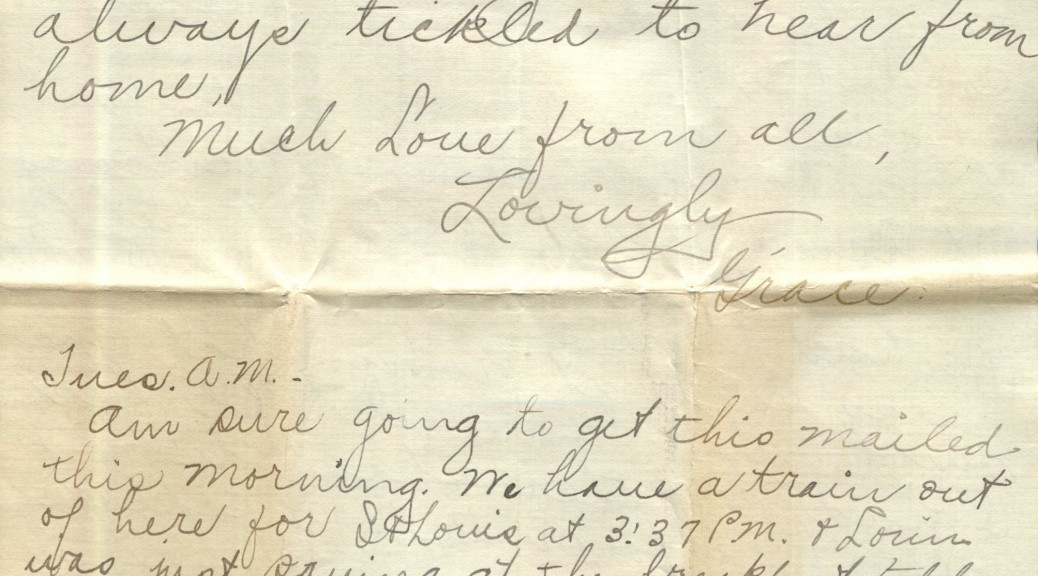 always tickled to hear from
home,
Much Love from all,
Lovingly
Grace.
Tues. A.M. -
Am sure going to get this mailed
this morning. We have a train out
of here for St Louis at 3:37 P.M. &
was just saying at the